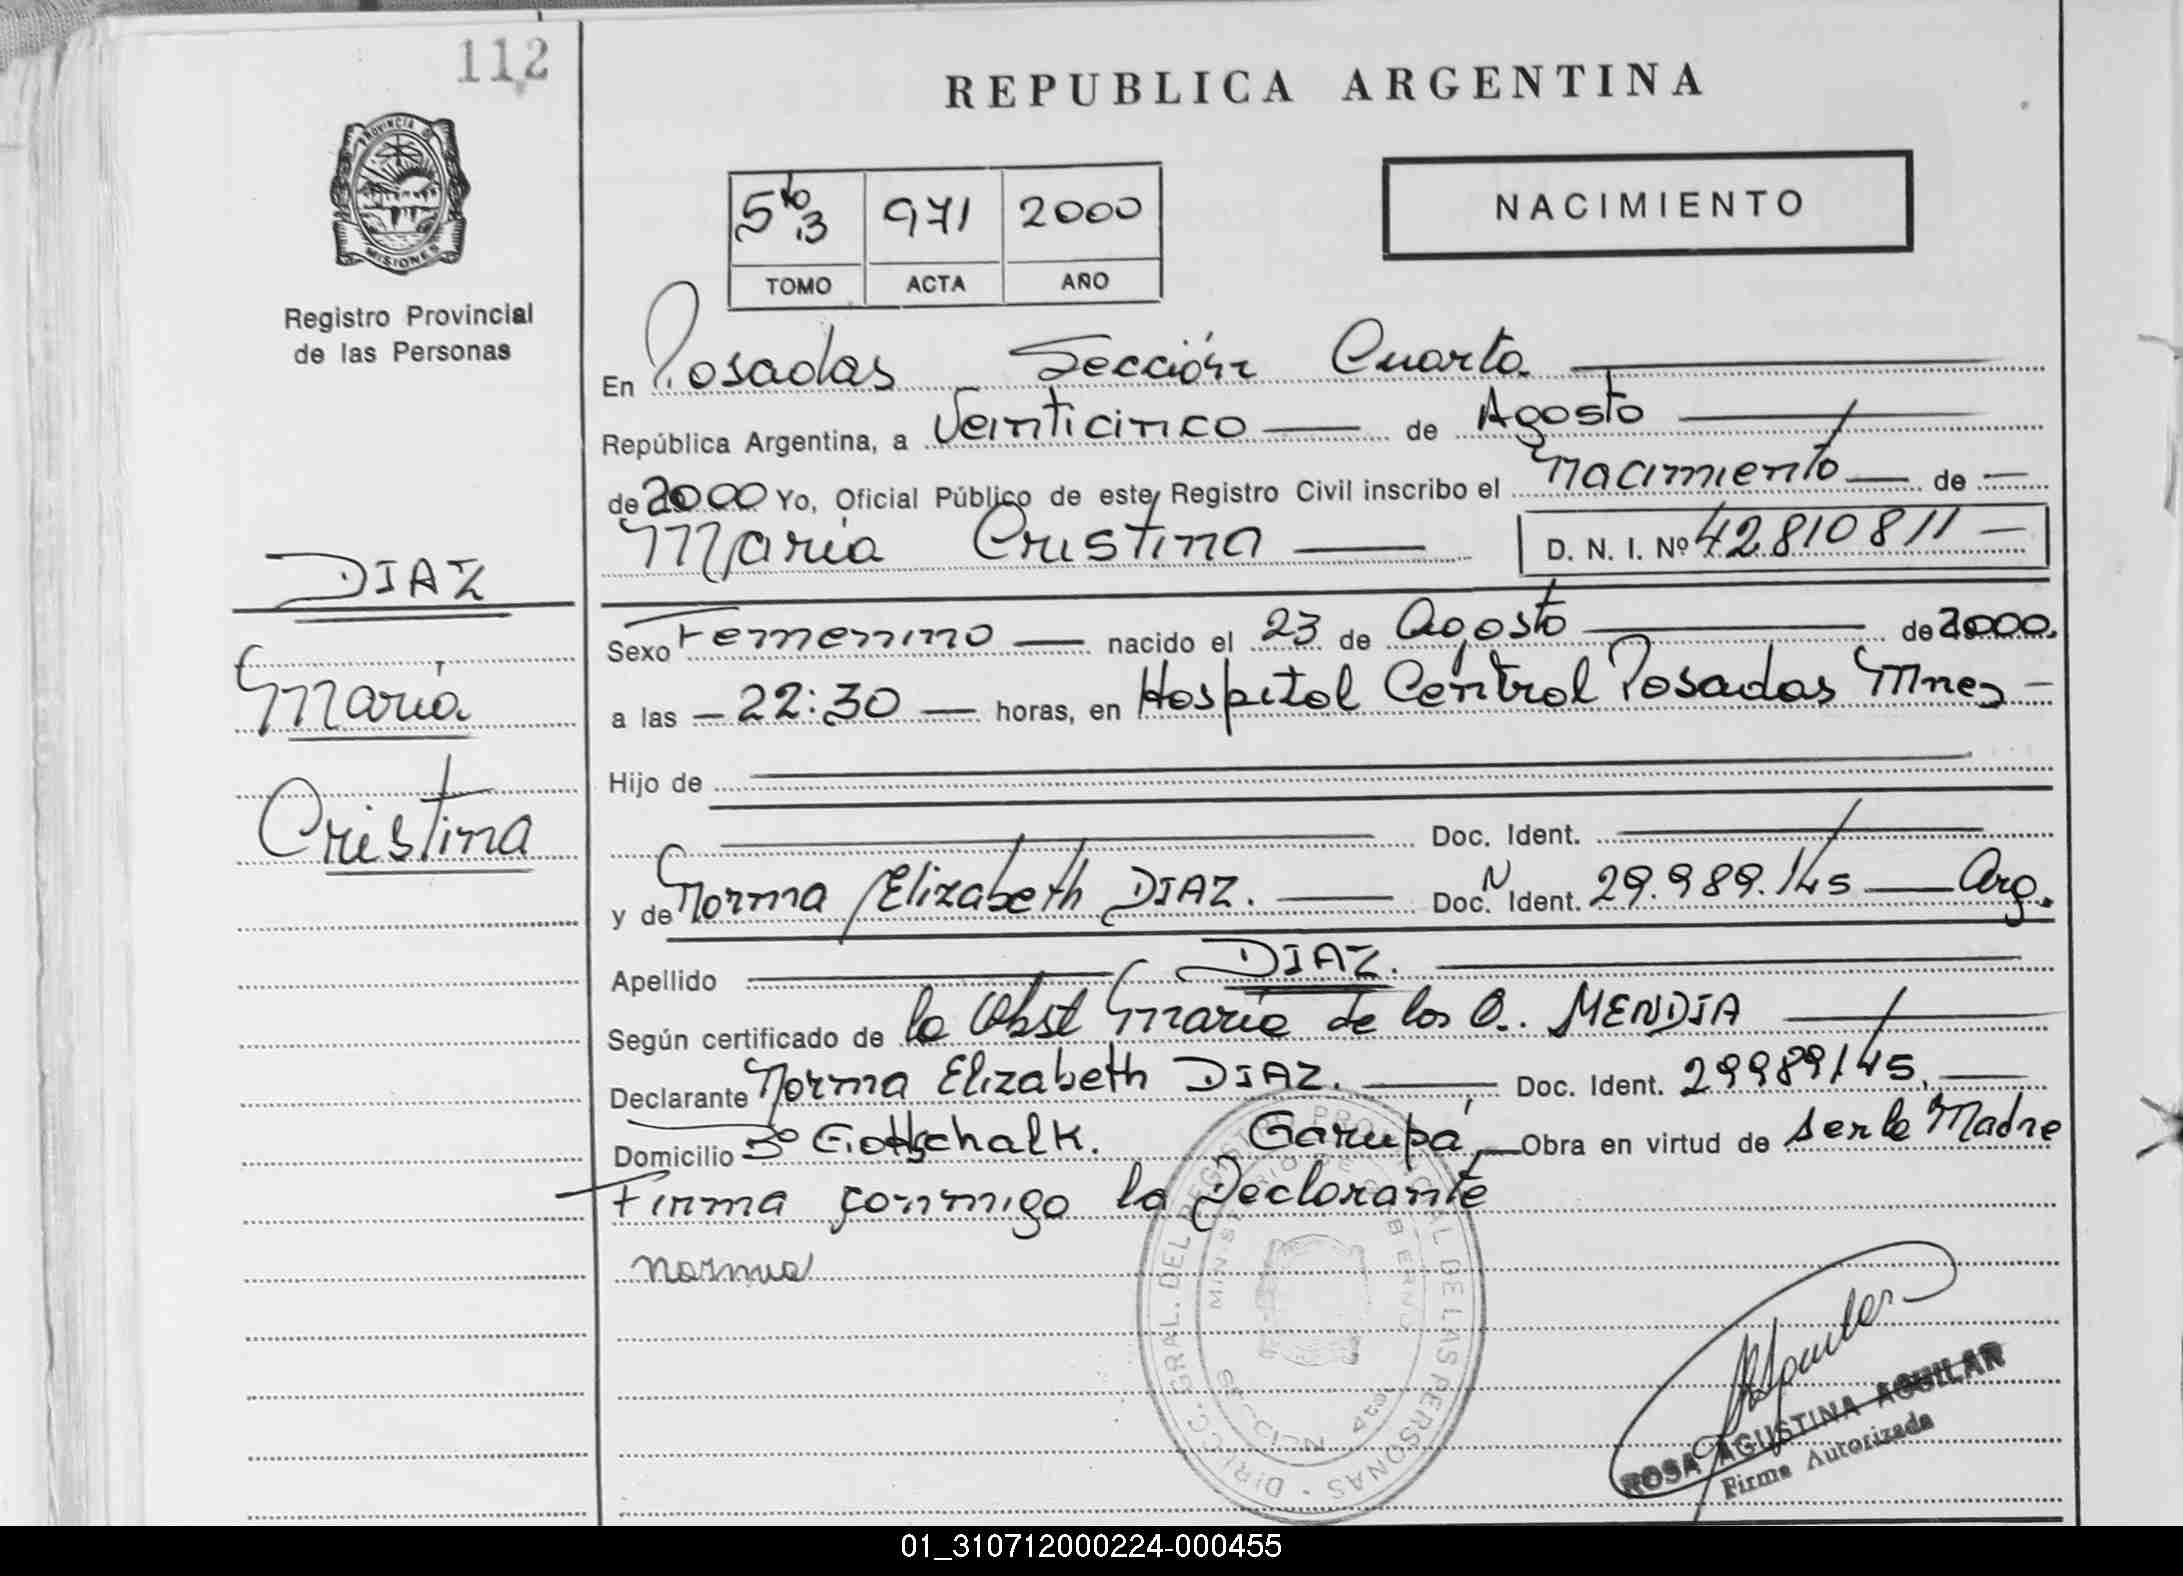 112
REPUBLICA ARGENTINA
PROVINCIA DE MISIONES
NACIMIENTO
5to 3 971 2000
TOMO ACTA AÑO
Registro Provincial
de las Personas
En Posadas Sección Cuarta
República Argentina, a Veinticinco de Agosto
de 2000 Yo, Oficial Público de este Registro Civil inscribo el Nacimiento de
María Cristina D. N. I. Nº 42810811
DIAZ
María
Cristina
Sexo Femenino nacido el 23 de Agosto de 2000.
a las 22:30 horas, en Hospital Central Posadas Mnes
Hijo de
Doc. Ident.
y de Norma Elizabeth DIAZ. Doc. N Ident. 29.989.145 Arg.
Apellido DIAZ.
Según certificado de la Obst María de los O.. MENDIA
Declarante Norma Elizabeth DIAZ. Doc. Ident. 29989145.
Domicilio Bº Gottschalk. Garupá, Obra en virtud de ser la Madre
Firma conmigo la Declarante
norma
DIRECC. GRAL. DEL REGISTRO PROVINCIAL DE LAS PERSONAS
MINISTERIO DE GOBIERNO
ROSA AGUSTINA AGUILAR
Firma Autorizada
01_310712000224-000455